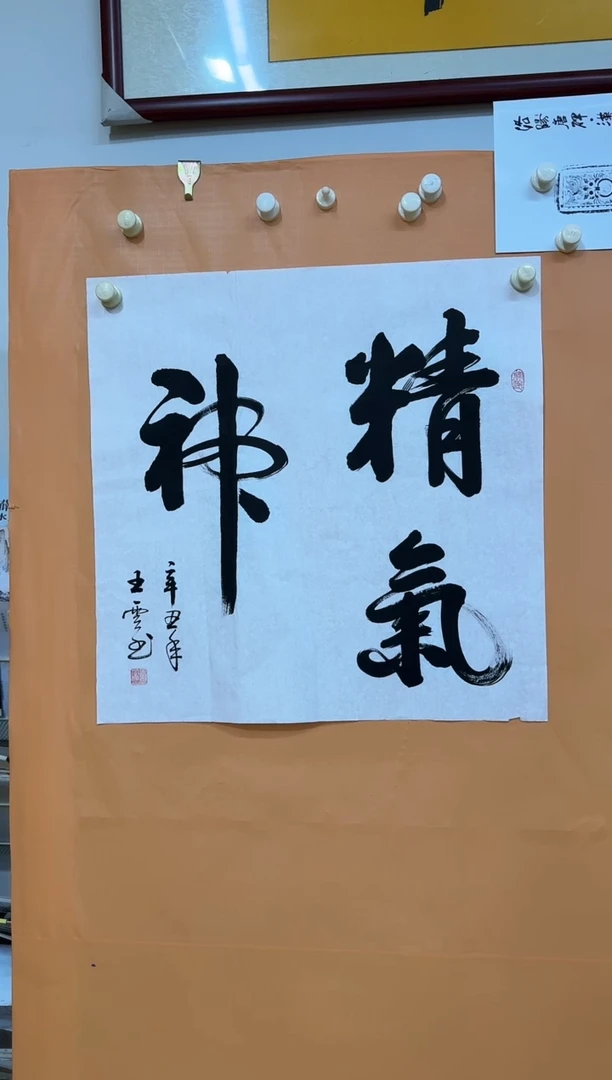 精氣
神
辛丑年
王雲书